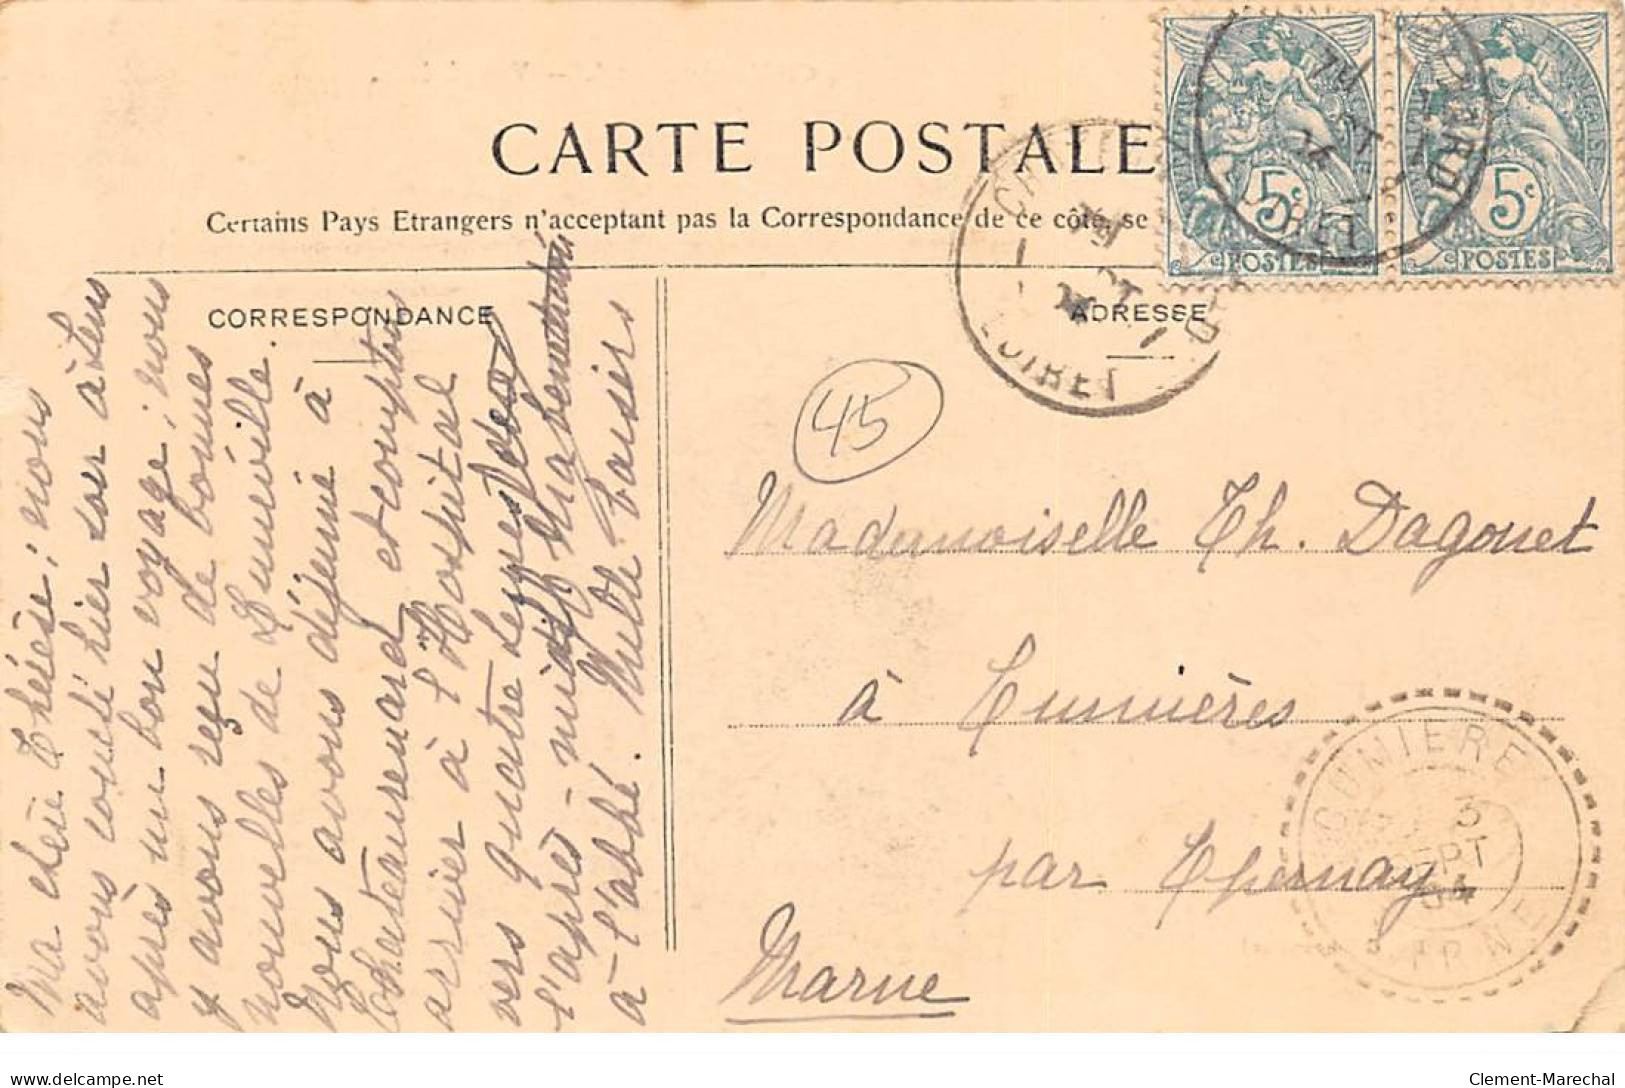 CARTE POSTALE
Certains Pays Etrangers n'acceptent pas la Correspondance de ce côté, se
CORRESPONDANCE
ADRESSE
5c
POSTES
5c
POSTES
LOIRET
45
Ma chère Thérèse; nous
avons couché hier soir à Sens
après un bon voyage; nous
y avons reçu de bonnes
nouvelles de Lunéville.
Nous avons déjeuné à
Châteaurenard et comptons
arriver à l'Hospital
vers quatre heures de
l'après-midi
à l'abbé. Mille baisers
Mademoiselle Th. Dagonet
à Cumières
par Epernay
Marne
CUMIERES
5
SEPT
04
MARNE
delcampe.net
Clement-Marechal